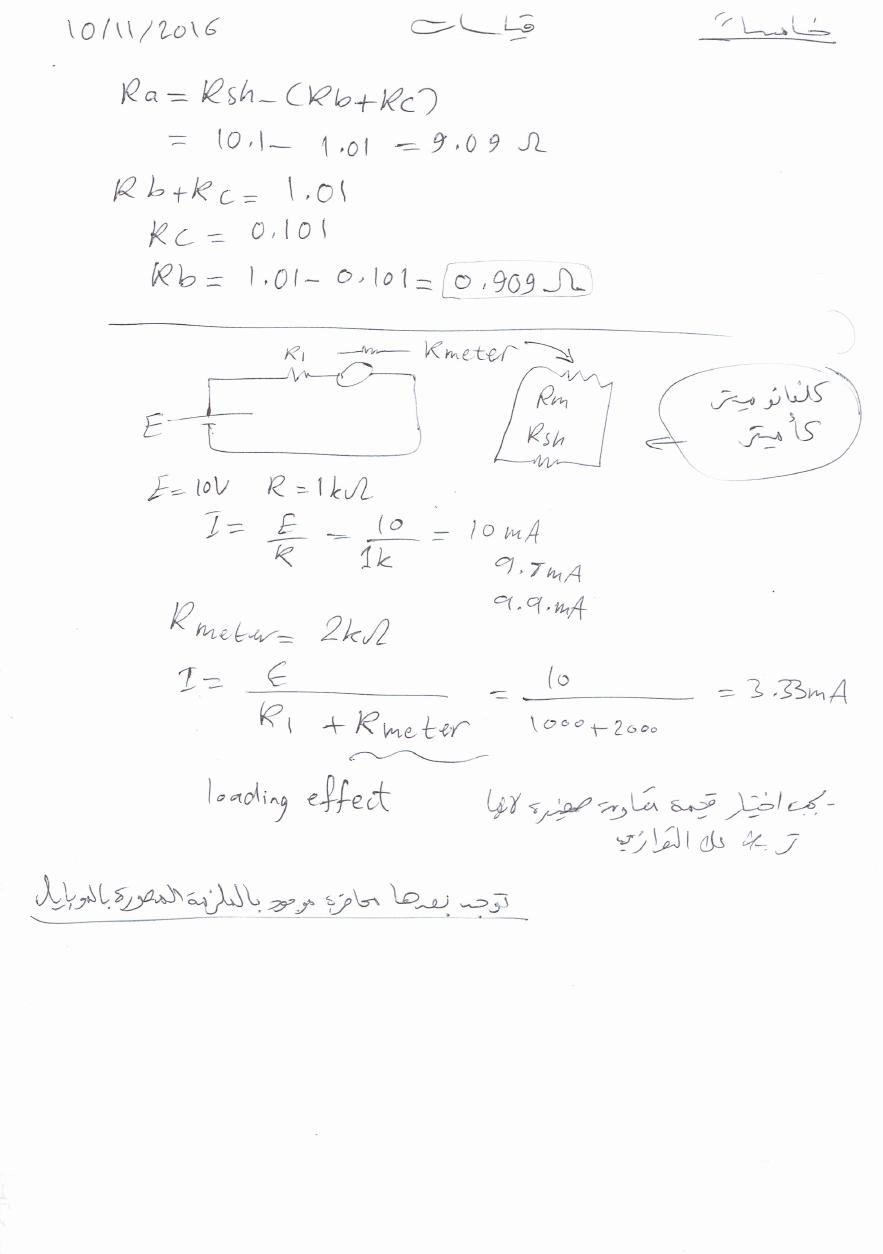 10/11/2016 قياسات
Ra = Rsh - (Rb + Rc)
= 10.1 - 1.01 = 9.09 Ω
Rb + Rc = 1.01
Rc = 0.101
Rb = 1.01 - 0.101 = 0.909 Ω
R1 Rmeter
E
Rm
Rsh
كلفانوميتر
كأميتر
E = 10V R = 1kΩ
I = E/R = 10/1k = 10 mA
9.7mA
9.9.mA
Rmeter = 2kΩ
I = E/(R1 + Rmeter) = 10/(1000 + 2000) = 3.33mA
loading effect
- يجب اختيار قيمة مقاومة صغيرة لانها
على التوازي
توجد بعدها محاضرة موجود بالملزمة المصورة بالموبايل